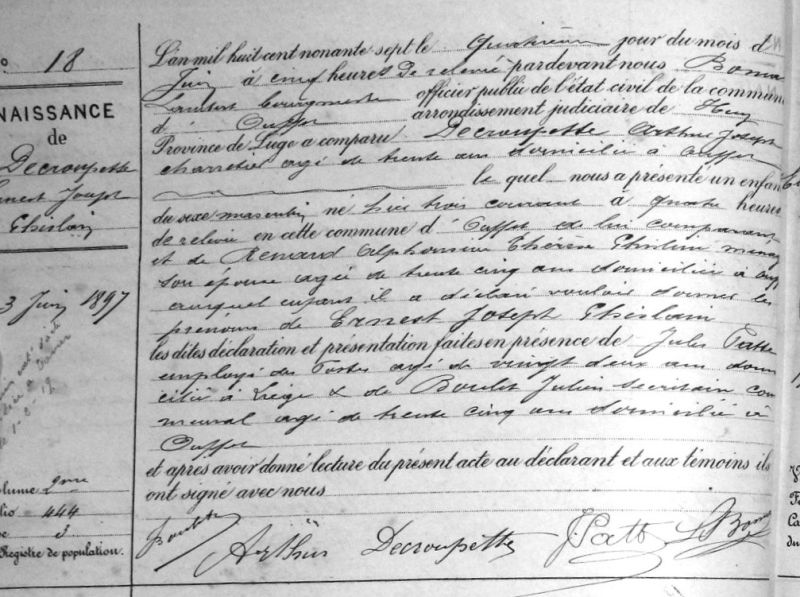 18
NAISSANCE
de
Decroupette
Ernest Joseph
Ghislain
3 Juin 1897
Volume 2me
Folio 444
Registre de population.
L'an mil huit cent nonante sept le quatrième jour du mois d
Juin à cinq heures de relevée pardevant nous Boma
Lambert bourgmestre officier public de l'état civil de la commune
d' Ouffet arrondissement judiciaire de Huy
Province de Liége a comparu Decroupette Arthur Joseph
charretier agé de trente ans domicilié à Ouffet
le quel nous a présenté un enfant
du sexe masculin né hier trois courant à quatre heures
de relevée en cette commune d' Ouffet de lui comparant
et de Renard Alphonsine Thérèse Ghislaine
son épouse agée de trente cinq ans domiciliée à
auquel enfant il a déclaré vouloir donner les
prénoms de Ernest Joseph Ghislain
les dites déclaration et présentation faites en présence de Jules
employé des Postes agé de vingt deux ans domi
cilié à Liége & de Boulet Julien secrétaire com
munal agé de trente cinq ans domicilié à
Ouffet
et après avoir donné lecture du présent acte au déclarant et aux témoins ils
ont signé avec nous
Arthur Decroupette